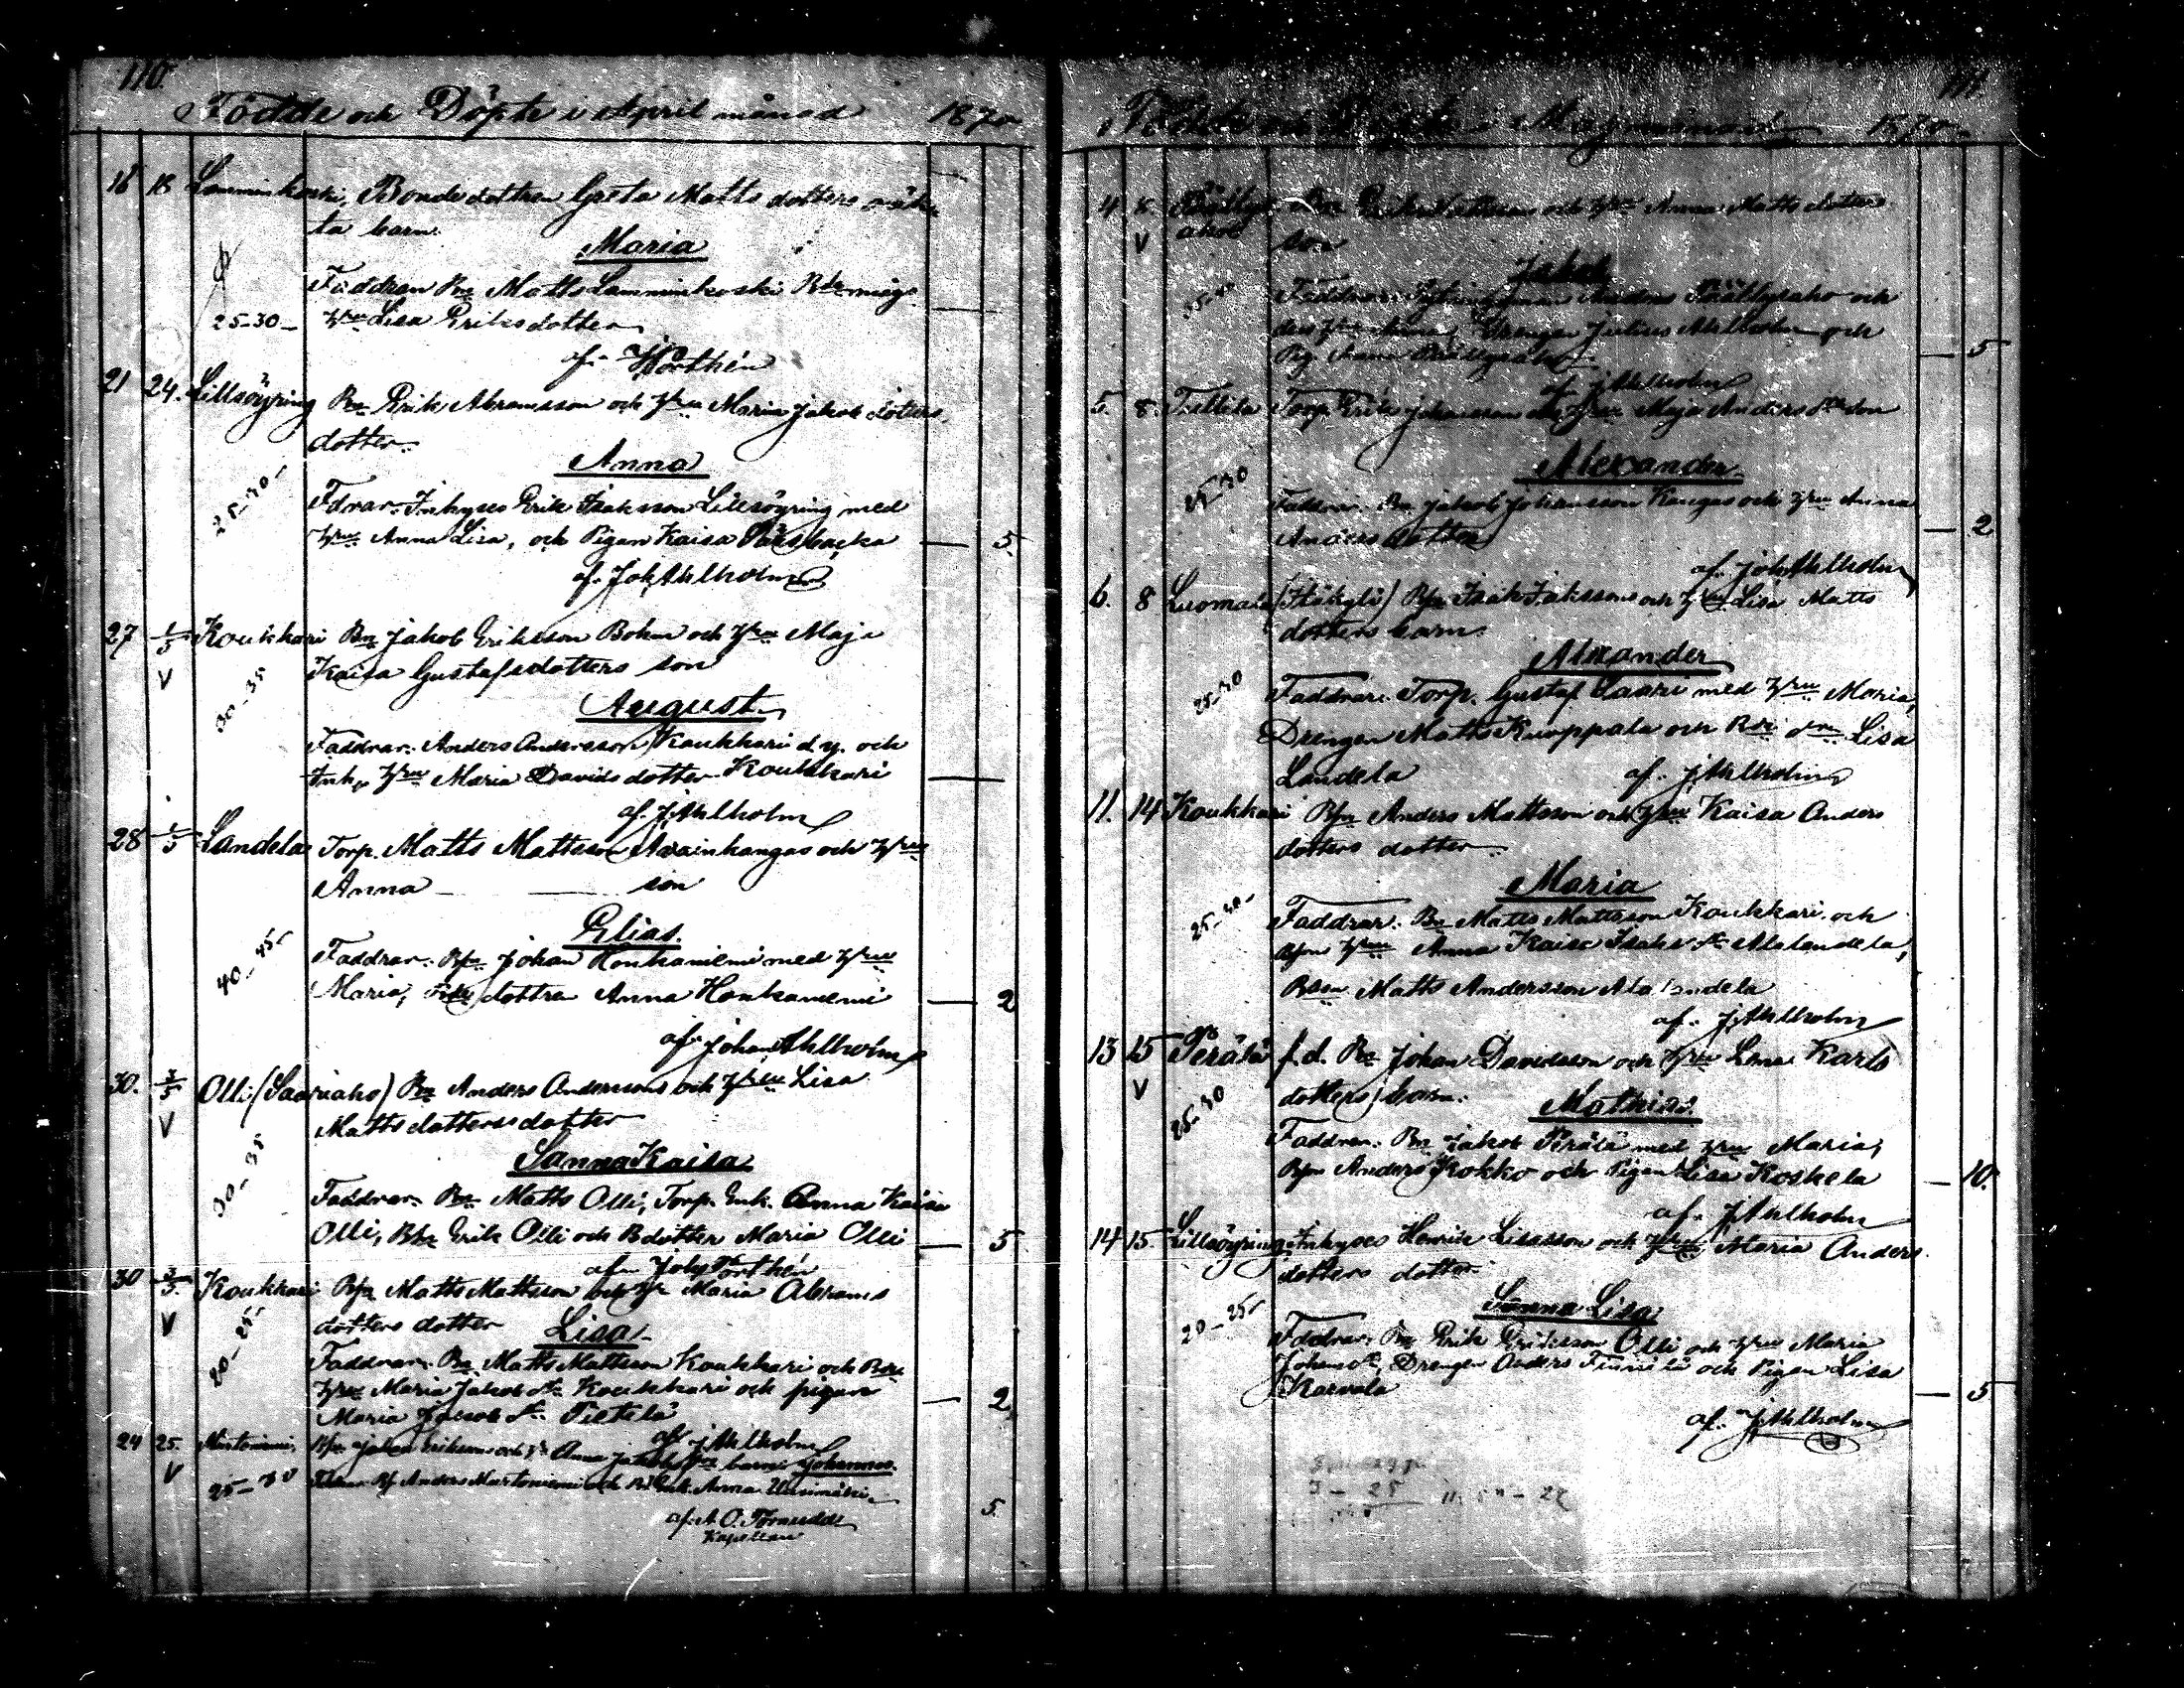 110.
Födde och Döpte i April månad 1870
16 18 Lamminkoski, Bonde dottren Greta Matts dotters oäk
ta barn.
Maria
Faddran Bn Matts Lamminkoski
25-30- hru Lisa Eriksdotter
af. Pörthén
21 24. Lillsöyring Bn Erik Abramsson och hru Maria Jakob dotters
dotter.
Anna
25-30-
Fdrar. Inhyses Erik Isaksson Lillsöyring med
hru Anna Lisa, och Pigan Kaisa 5.
af. Joh Ahlholm
27 1/5 Koukkari Bn Jakob Eriksson Bohm och hru Maja
V Kaisa Gustafsdotters son
30-35
August.
Faddrar. Anders Andersson Koukkari d.y. och
Inh. hru Maria Davids dotter Koukkari
af. J. Ahlholm
28 1/5 Landela Torp. Matts Mattsson Avainkangas och hru
Anna son
Elias.
40-45-
Faddrar. Bn Johan Honkaniemi med hru
Maria, dottren Anna Honkaniemi 2
af. Johan Ahlholm
30. 3/5 Olli (Saariaho) Bn Anders Andersson och hru Lisa
V Matts dotters dotter
Sanna Kaisa
30-35
Faddrar. Bn Matts Olli, Torp. Enk. Anna Kaisa
Olli, Erik Olli och Bdotter Maria Olli 5
af Pörthén
30 3/5. Koukkari Bn Matts Mattsson och hr Maria Abrams
V dotters dotter Lisa
20-25-
Faddrar. Bn Matts Mattsson Koukkari och
hru Maria Jakob dr Koukkari och pigan
Maria Jakob dr. Tietilä 2
af J Ahlholm
24 25. Martoniemi, Johan Eriksson och hr Anna Jakobs barn Johannes.
V 25-30 Anders Martoniemi och Enk. Anna Uusimäki
5.
af. A. O. Törnudd
Kapellan
111.
Födde och Döpte i Maj månad 1870
4 8. Bn Erik Mattsson och hru Anna Matts dotters
V aho son
Jakob
och
Drengen Julius Ahlholm och
Pig. Anna 5
af J Ahlholm
5. 8. Tietilä Torp. Erik Johansson och hru Maja Anders son
Alexander
25-30
Faddrar. Bn Jakob Johansson Kangas och hru Anna
Anders dotter 2
af. Joh Ahlholm
6. 8 Luomala Isak Isaksson och hru Lisa Matts
dotters barn.
Alexander
25-30
Faddrar. Torp. Gustaf Saari med hru Maria,
Drengen Matts Knuppala och Lisa
Landela af. J. Ahlholm
11. 14 Koukkari Bn Anders Mattsson och hru Kaisa Anders
dotters dotter
Maria
25-30-
Faddrar. Bn Matts Mattsson Koukkari och
hru Anna Kaisa Isaks dr Alalandela,
Matts Andersson Alalandela
af. J Ahlholm
13 15 Perälä f.d. Bn Johan Davidsson och hru Lena Karls
V dotters barn. Mathias
25-30
Faddrar. Bn Jakob Perälä med hru Maria,
Anders Kokko och Pigan Lisa Koskela 10.
af. J Ahlholm
14 15. Lillsöyring Inhyses Henrik Lisasson och hru Maria Anders
dotters dotter.
Sanna Lisa
20-25-
Faddrar. Bn Erik Eriksson Olli och hru Maria
Johans dr, Drengen Anders och Pigan Lisa
Karvala 5
af. J Ahlholm